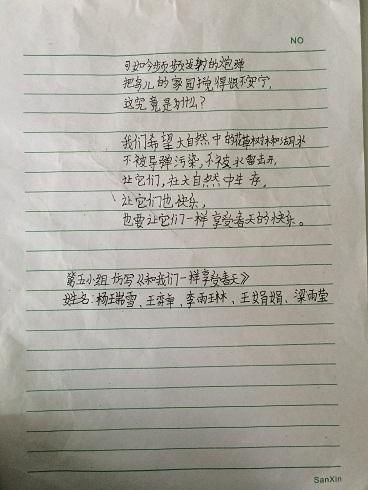 NO
可如今频频发射的炮弹
把鸟儿的家园搅得很不安宁,
这究竟是为什么?
我们希望大自然中的花草树林和湖水
不被导弹污染,不被水雷击开,
让它们,在大自然中生存,
让它们也快乐,
也要让它们一样享受春天的快乐。
第五小组 仿写《和我们一样享受春天》
姓名:杨瑞雪、王弈卓、李雨琳、王娟娟、梁雨莹
SanXin